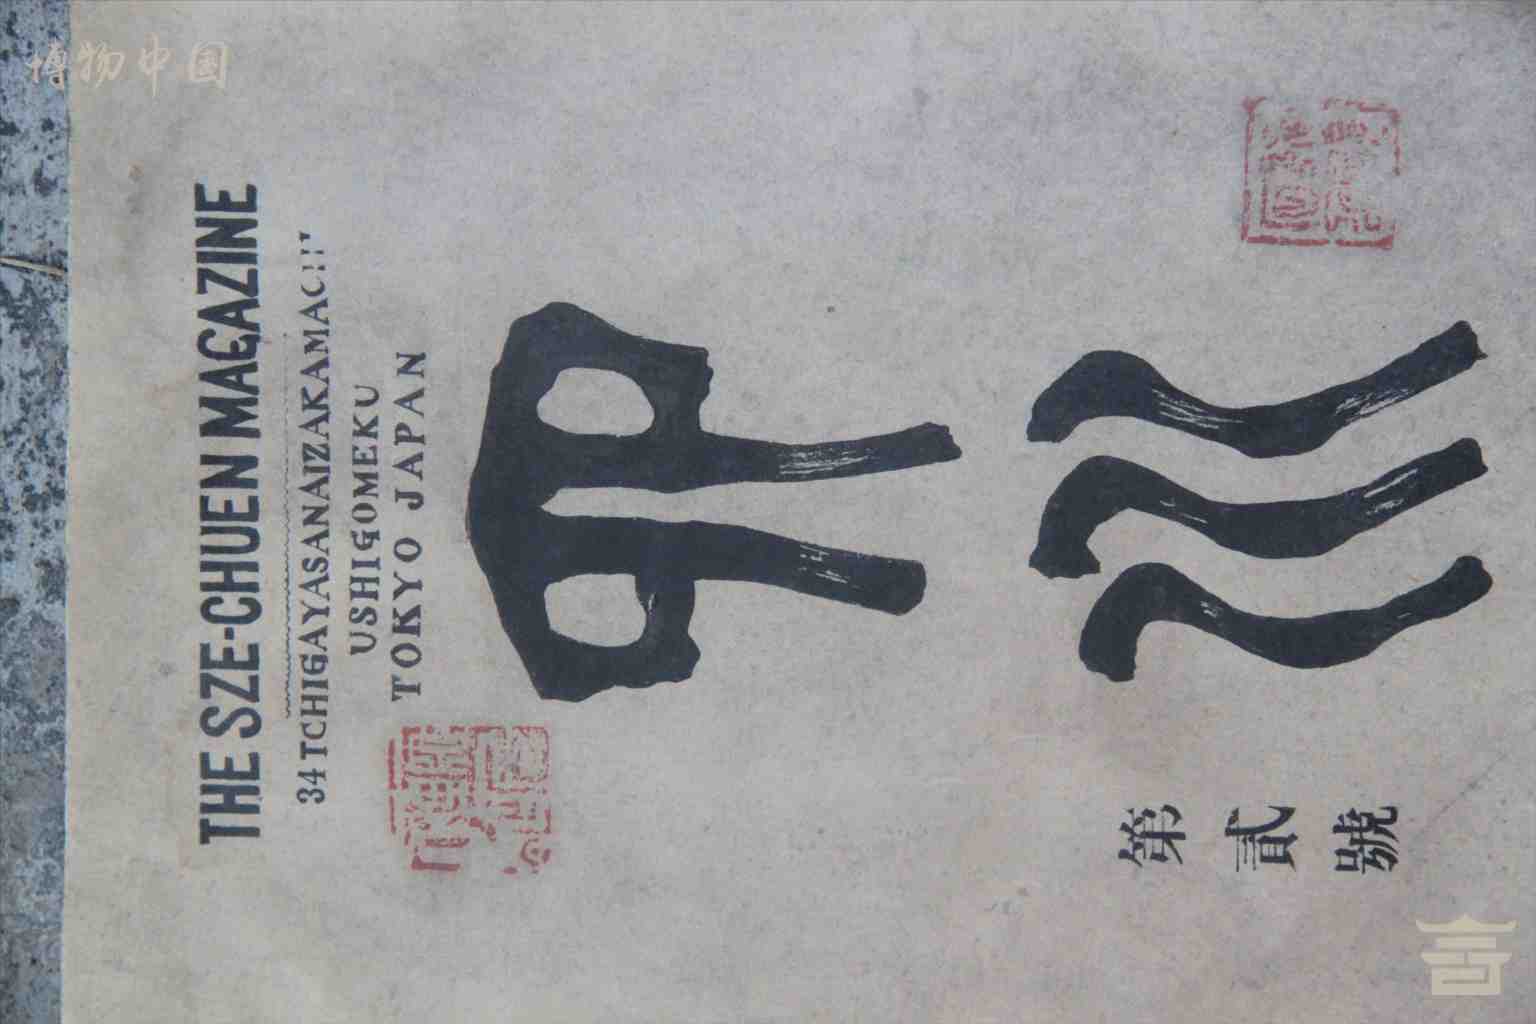 博物中国
THE SZE-CHUEN MAGAZINE
34 TCHIGAYASANAIZAKAMACHI
USHIGOMEKU
TOKYO JAPAN
四川
第貳號